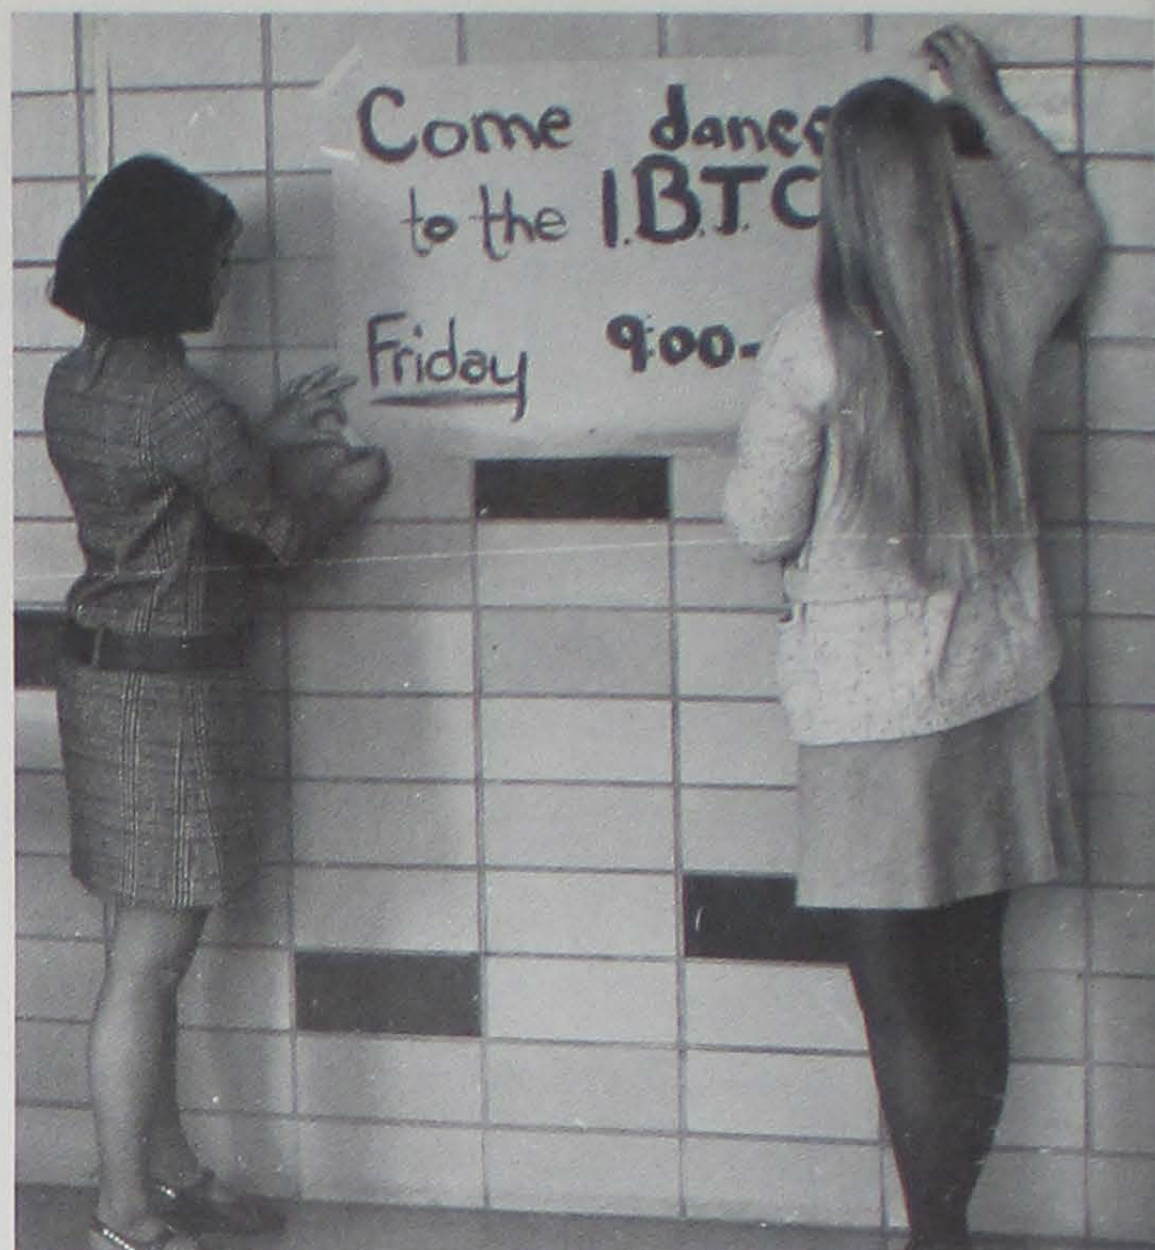 Come dance
to the I.B.T.C
Friday 9:00-